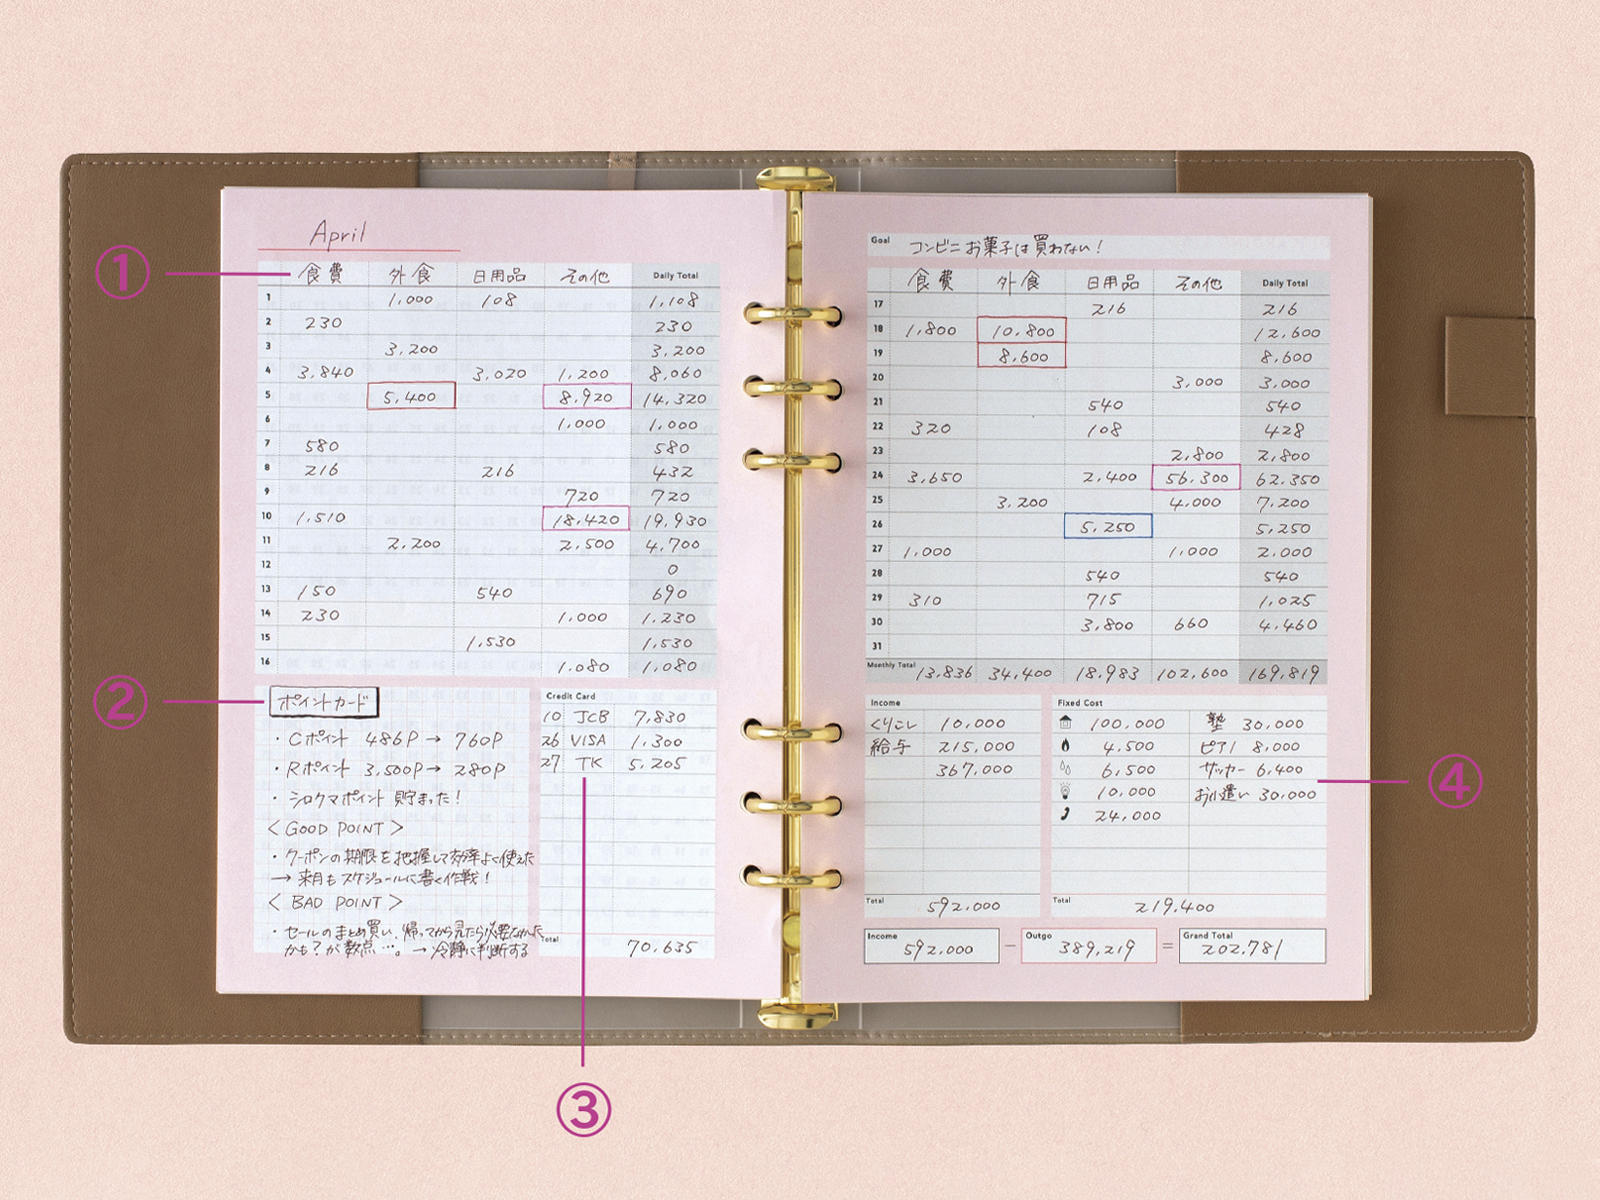 April
① 食費 外食 日用品 その他 Daily Total
1 1,000 108 1,108
2 230 230
3 3,200 3,200
4 3,840 3,020 1,200 8,060
5 5,400 8,920 14,320
6 1,000 1,000
7 580 580
8 216 216 432
9 720 720
10 1,510 18,420 19,930
11 2,200 2,500 4,700
12 0
13 150 540 690
14 230 1,000 1,230
15 1,530 1,530
16 1,080 1,080
② ポイントカード
・Cポイント 486P → 760P
・Rポイント 3,500P → 280P
・シロクマポイント 貯まった!
<GOOD POINT>
・クーポンの期限を把握して効率よく使えた
→ 来月もスケジュールに書く作戦!
<BAD POINT>
・セールのまとめ買い、帰ってから見たら必要なかった
かも?が数点…。→ 冷静に判断する
Credit Card
10 JCB 7,830
26 VISA 1,300
27 TK 5,205
Total 70,635
③
Goal コンビニお菓子は買わない!
食費 外食 日用品 その他 Daily Total
17 216 216
18 1,800 10,800 12,600
19 8,600 8,600
20 3,000 3,000
21 540 540
22 320 108 428
23 2,800 2,800
24 3,650 2,400 56,300 62,350
25 3,200 4,000 7,200
26 5,250 5,250
27 1,000 1,000 2,000
28 540 540
29 310 715 1,025
30 3,800 660 4,460
31
Monthly Total 13,836 34,400 18,983 102,600 169,819
Income
くりこし 10,000
給与 215,000
367,000
Total 592,000
Fixed Cost
100,000 塾 30,000
4,500 ピアノ 8,000
6,500 サッカー 6,400
10,000 お小遣い 30,000
24,000
Total 219,400
④
Income 592,000 − Outgo 389,219 = Grand Total 202,781